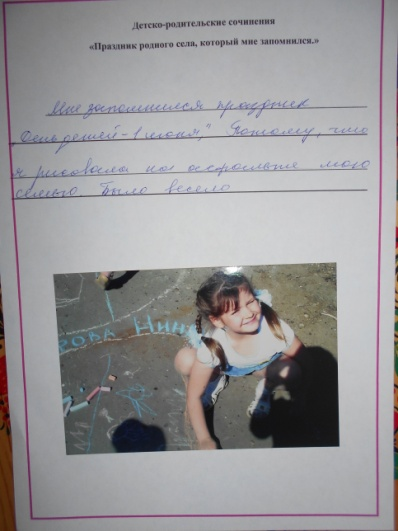 Детско-родительские сочинения
«Праздник родного села, который мне запомнился.»
Мне запомнился праздник
„День детей - 1 июня," Потому, что
я рисовала на асфальте мою
семью. Было весело
рова Нина